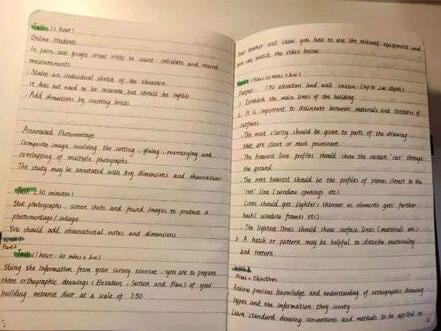 (1 hour)
Online students
In pairs use google street view to count, calculate and record
measurements.
· Make an individual sketch of the elevation
it does not need to be accurate but should be legible
· Add dimensions by counting bricks
Annotated Photomontage
Composite image involving the cutting, gluing, rearranging and
overlapping of multiple photographs
The study may be annotated with key dimensions and observations
(30 minutes)
Use photographs, screen shots and found images to produce a
photomontage/collage
You should add observational notes and dimensions.
Part 2
(1 hour : 30 mins + hw)
Using the information from your survey exercise, you are to prepare
three orthographic drawings (Elevation, Section and Plan) of your
building entrance door at a scale of 1:50
Your teacher will show you how to use the relevant equipment and
you can watch the video below
(1 hour 30 mins + hw)
Output - 1:50 elevation and wall section (up to 2m depth)
1. Establish the main lines of the building
2. It is important to delineate between materials and textures of
surfaces
· The most clarity should be given to parts of the drawing
that are closer or most prominent
· The heaviest line profiles should show the section 'cut' through
the ground
· The next heaviest should be the profiles of planes closest to the
'cut' line (window openings etc)
Lines should get lighter/thinner as elements gets further
back (window frames etc)
· The lightest lines should show surface lines (materials etc)
A hatch or pattern may be helpful to describe materiality
and texture
Aims + Objectives
Review previous knowledge and understanding of orthographic drawing
types and the information they convey
Learn standard drawing conventions and methods to be applied to